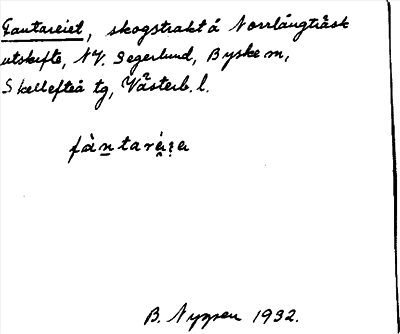 Fantareiet, skogstrakt å Norrlångträsk
utskifte, NV. Segerlund, Byske sn,
Skellefteå tg, Västerb. l.
fàntaráia
B. Nygren 1932.